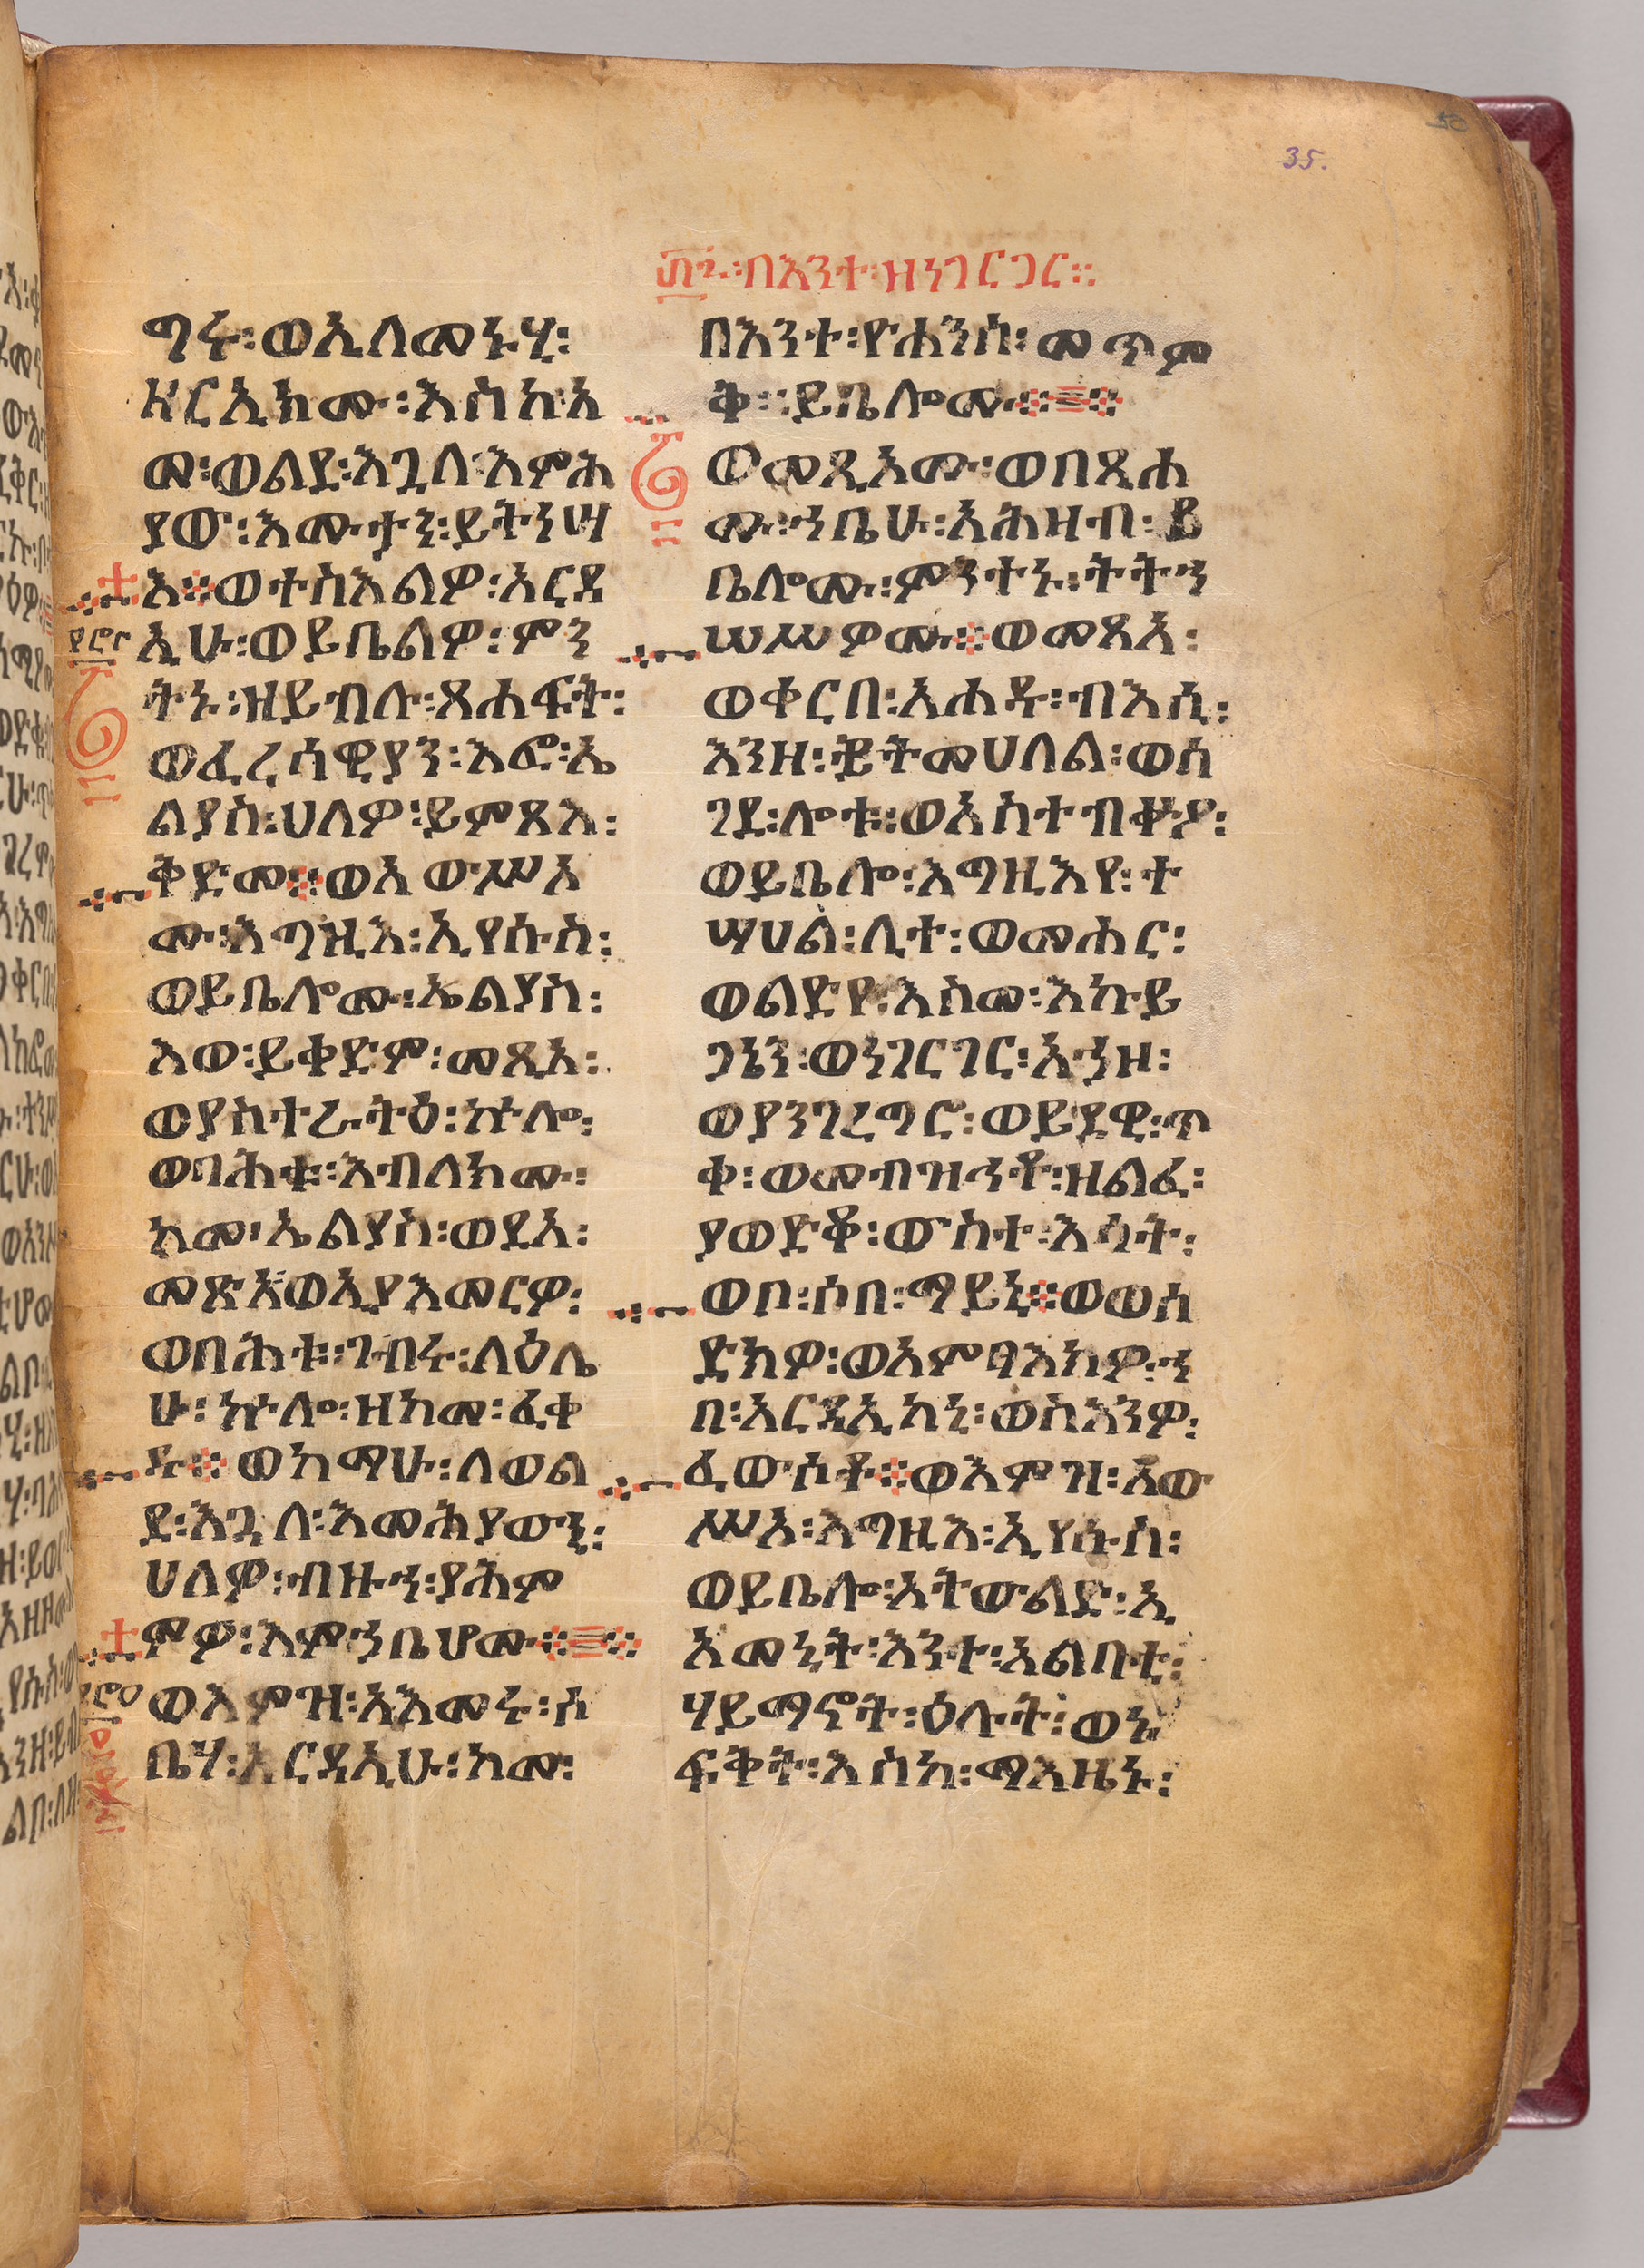 35.
በእንተ፡ዘነገርጋር፡፡
ግሩ፡ወኢለመኑሂ፡
ዘርኢክሙ፡እስከ፡አ
መ፡ወልደ፡እጓለ፡እምሕ
ያው፡እሙታን፡ይትነሣ
እ፨ወተስእልዎ፡አርዳ
ኢሁ፡ወይቤልዎ፡ምን
ትኑ፡ዝይብሉ፡ጸሐፍት፡
ወፈሪሳዊያን፡እፎ፡ኤ
ልያስ፡ሀለዎ፡ይምጻእ፡
ቅድመ፨ወአውሥአ
ሙ፡እግዚእ፡ኢየሱስ፡
ወይቤሎሙ፡ኤልያስ፡
እወ፡ይቀድም፡መጺአ፡
ወያስተራትዕ፡ኵሎ፡
ወባሕቱ፡እብለክሙ፡
ከመ፡ኤልያስ፡ወደአ፡
መጽአ፡ወኢያእመርዎ፡
ወባሕቱ፡ገብሩ፡ለዕሌ
ሁ፡ኵሎ፡ዘከመ፡ፈቀ
ዱ፨ወከማሁ፡ለወል
ደ፡እጓለ፡እመሕያውኒ፡
ሀለዎ፡ብዙኅ፡ያሕም
ምዎ፡እምኀቤሆሙ፨
ወእምዝ፡አእመሩ፡ሶ
ቤሃ፡አርዳኢሁ፡ከመ፡
በእንተ፡ዮሐንስ፡መጥም
ቅ፡፡ይቤሎሙ፨
ወመጺኦሙ፡ወበጺሖ
ሙ፡ኀቤሁ፡አሕዛብ፡ይ
ቤሎሙ፡ምንተኑ፡ትትኀ
ሠሥዎሙ፨ወመጽአ፡
ወቀርበ፡አሐዱ፡ብእሲ፡
እንዘ፡ይትመሀለል፡ወሰ
ገደ፡ሎቱ፡ወአስተብቍዖ፡
ወይቤሎ፡እግዚእየ፡ተ
ሣሀል፡ሊተ፡ወመሐር፡
ወልድየ፡እስመ፡እኩይ
ጋኔን፡ወነገርጋር፡አኀዞ፡
ወያንገረግሮ፡ወይደዊ፡ጥ
ቀ፡ወመብዝኅቶ፡ዘልፈ፡
ያወድቆ፡ውስተ፡እሳት፡
ወቦ፡ሶበ፡ማይኒ፨ወወሰ
ድክዎ፡ወአምፃእክዎ፡ኀ
በ፡አርዳኢከኒ፡ወስእንዎ፡
ፈውሶቶ፨ወእምዝ፡አው
ሥአ፡እግዚእ፡ኢየሱስ፡
ወይቤሎ፡ኦትውልድ፡ኢ
አመኒት፡እንተ፡አልባቲ፡
ሃይማኖት፡ዕሉት፡ወኑ
ፍቅት፡እስከ፡ማእዜኑ፡